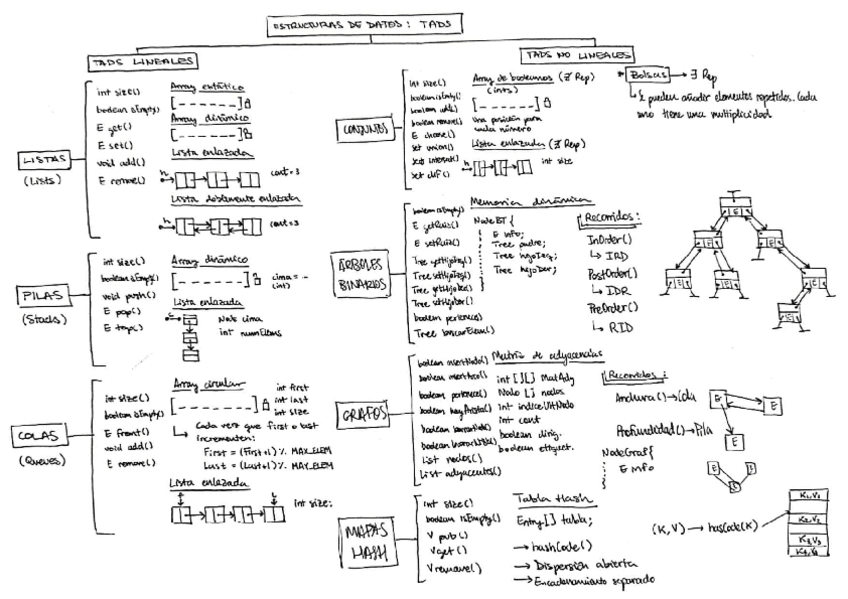 ESTRUCTURAS DE DATOS: TADS
TADS LINEALES
LISTAS
(Lists)
int size()
boolean isEmpty()
E get()
E set()
void add()
E remove()
Array estático
Array dinámico
Lista enlazada
cont=3
Lista doblemente enlazada
cont=3
PILAS
(Stacks)
int size()
boolean isEmpty()
void push()
E pop()
E top()
Array dinámico
cima = --
(int)
Lista enlazada
Node cima
int numElems
COLAS
(Queues)
int size()
boolean isEmpty()
E front()
void add()
E remove()
Array circular
int first
int last
int size
Cada vez que first o last
incrementen:
First = (First+1) % MAX_ELEM
Last = (Last+1) % MAX_ELEM
Lista enlazada
int size;
TADS NO LINEALES
CONJUNTOS
int size()
boolean isEmpty()
boolean add()
boolean remove()
E choose()
set union()
set dif()
Array de booleanos (∄ Rep)
(ints)
Una posición para
cada número
Lista enlazada (∄ Rep)
int size
* Bolsas → ∃ Rep
Se pueden añadir elementos repetidos. Cada
uno tiene una multiplicidad
ÁRBOLES
BINARIOS
boolean isEmpty()
E getRaiz()
E setRaiz()
Tree getHijoIzq()
Tree setHijoIzq()
Tree getHijoDer()
Tree setHijoDer()
boolean pertenece()
Tree buscarElem()
Memoria dinámica
NodeBT {
E info;
Tree padre;
Tree hijoIzq;
Tree hijoDer;
}
Recorridos:
InOrder()
↳ IRD
PostOrder()
↳ IDR
PreOrder()
↳ RID
E
E
E
E
E
E
E
GRAFOS
boolean insertNodo()
boolean insertArco()
boolean pertenece()
boolean hayArista()
boolean borrarNodo()
List nodos()
List adyacentes()
Matriz de adyacencias
int [][] MatAdy
Nodo [] nodos
int indiceUltNodo
int cont
boolean dirig.
boolean etiquet.
Recorridos:
Anchura() → Cola
Profundidad() → Pila
NodeGraf {
E info
}
E
E
E
E
E
E
MAPAS
HASH
int size()
boolean isEmpty()
V put()
V get()
V remove()
Tabla Hash
Entry[] tabla;
→ hashCode()
→ Dispersión abierta
→ Encadenamiento separado
(K,V) → hasCode(K)
K1,V1
K2,V2
K3,V3
K4,V4